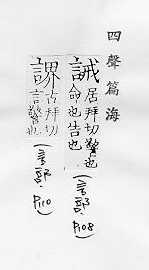 四聲篇海
誡
居拜切警也
命也告也
(言部 P108)
古拜切
言警也
(言部 P110)